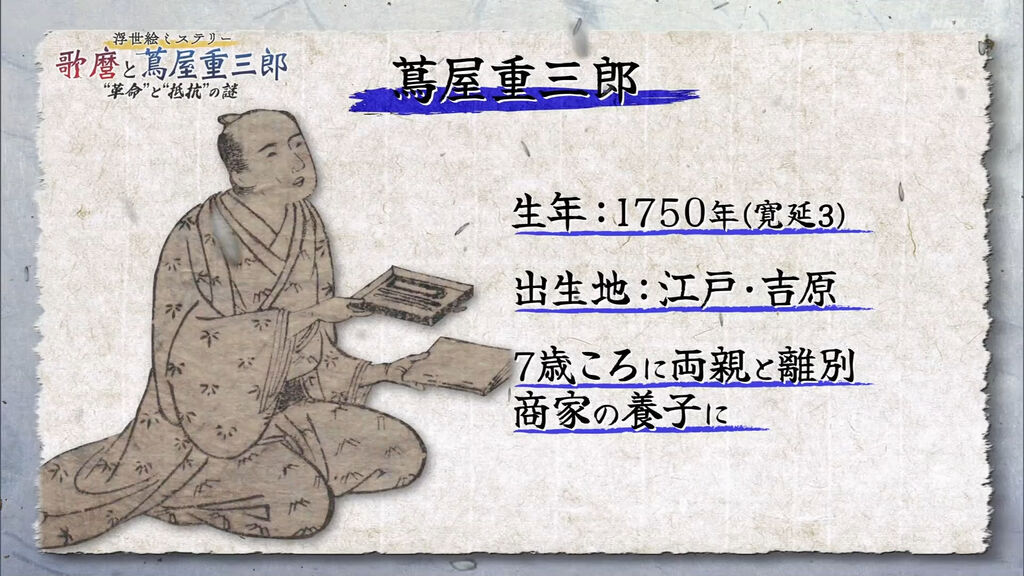 浮世絵ミステリー
歌麿と蔦屋重三郎
“革命”と“抵抗”の謎
蔦屋重三郎
生年：1750年(寛延3)
出生地：江戸・吉原
7歳ころに両親と離別
商家の養子に